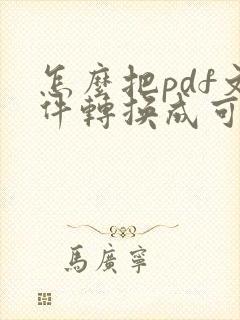 怎麼把pdf文
件轉換成可
馬廣寧